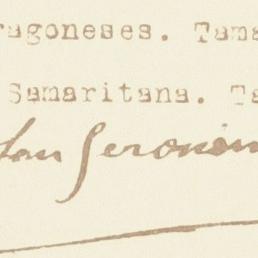 ragoneses. Tama
Samaritana. Ta
San Geronim